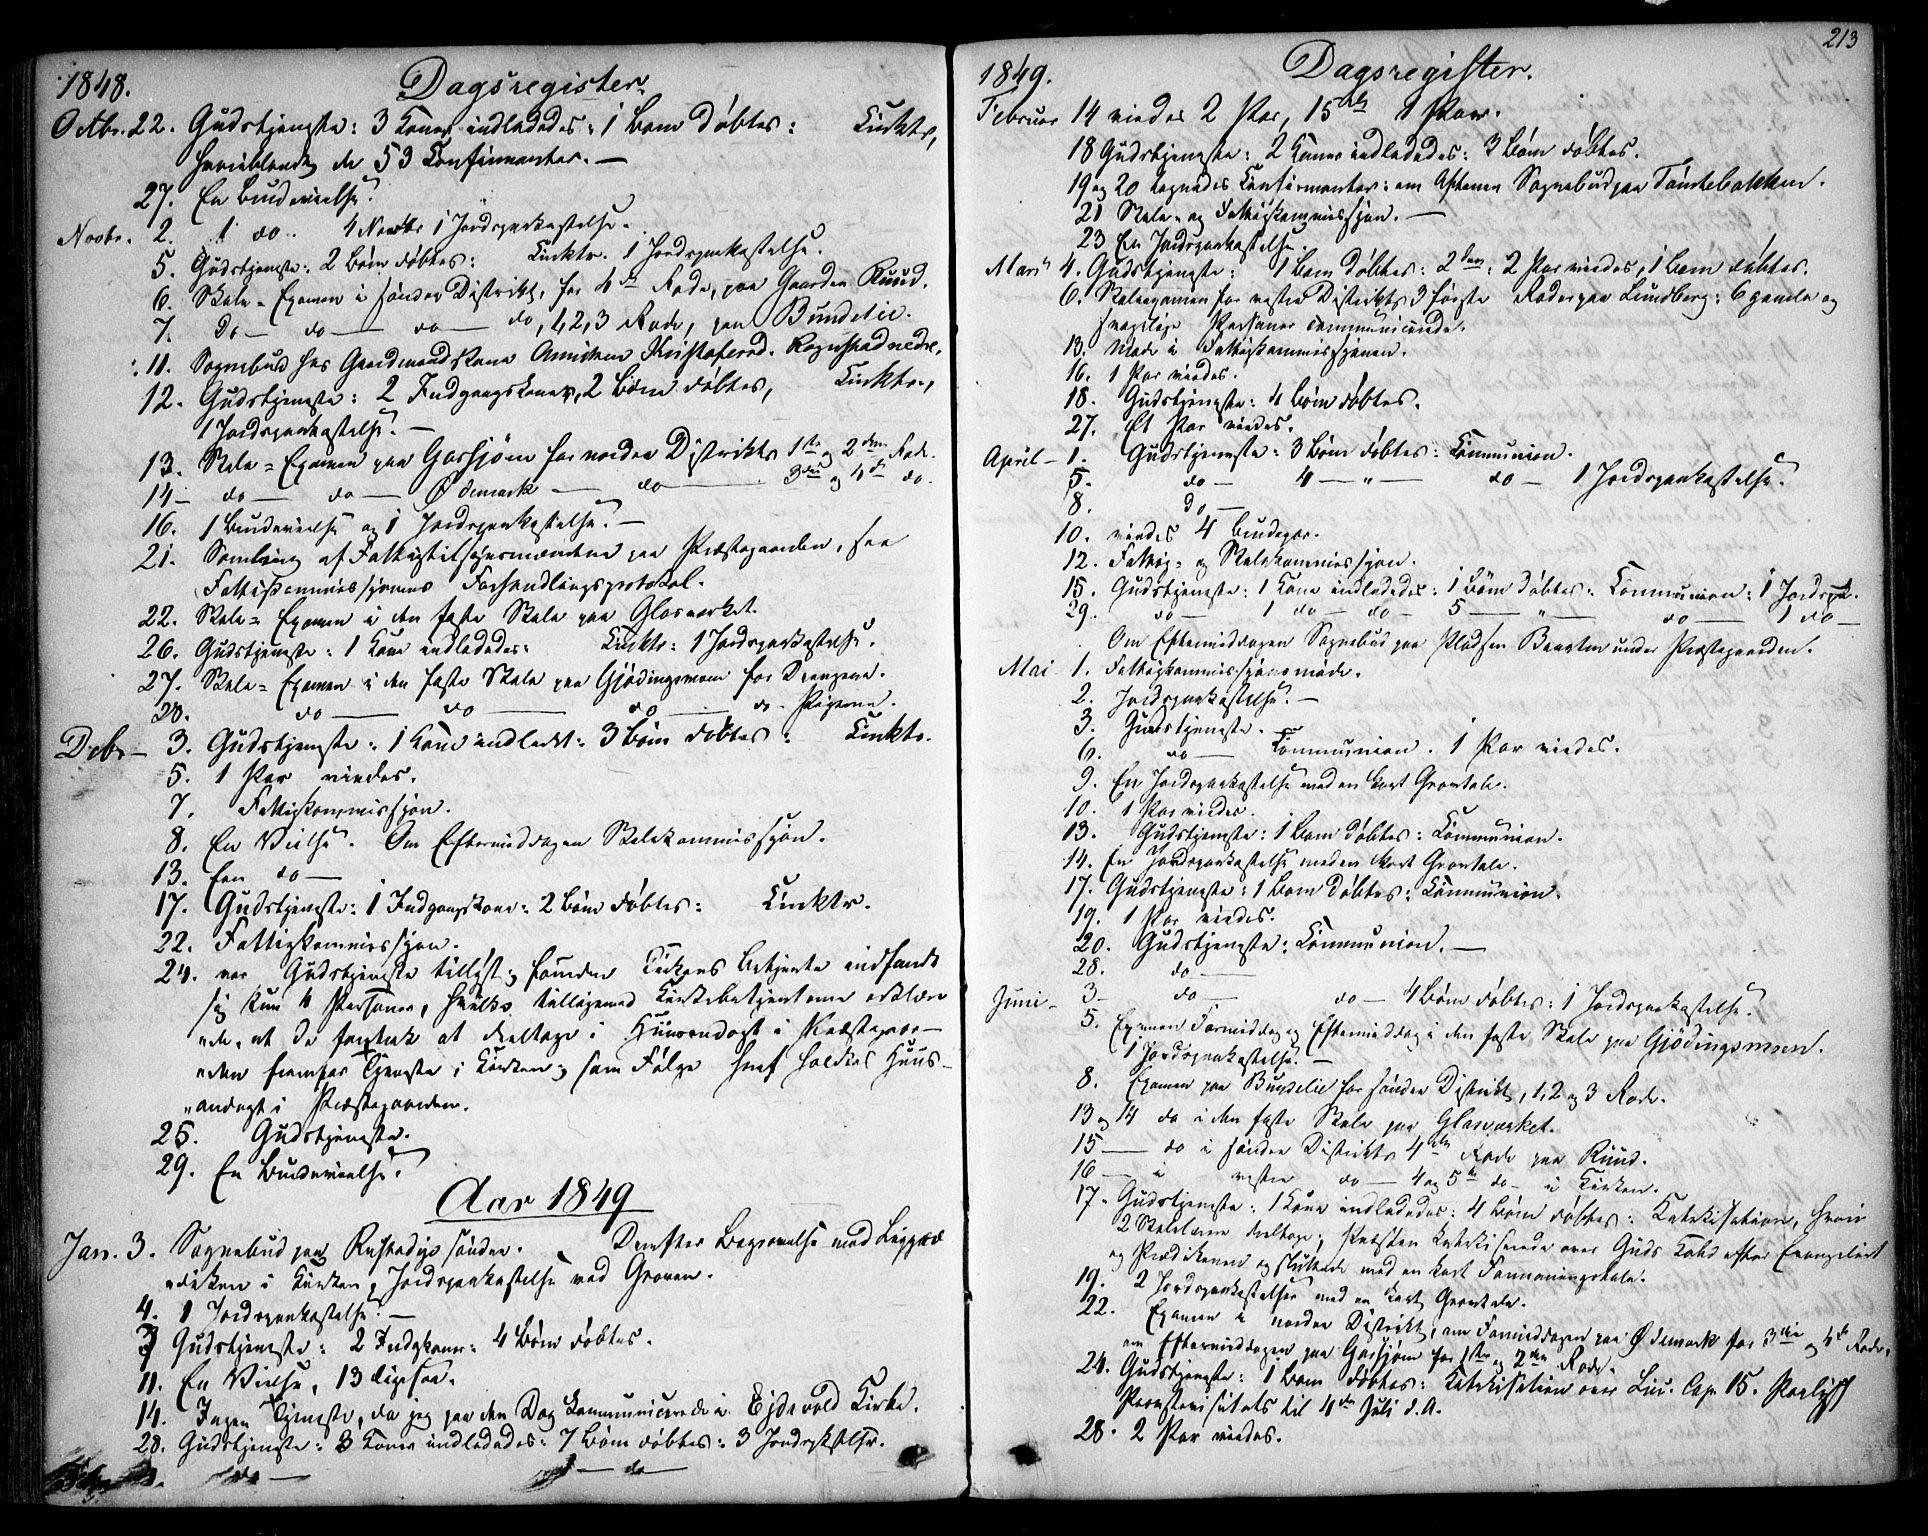 1848. Dagsregister.
Octbr. 22. Gudstjeneste: 3 Koner indlededes: 1 Barn døbtes: Cinktr,
hvoriblandt de 53 Confirmanter. —
27. En Brudevielse.
Novbr. 2. 1 do. 4 Novbr 1 Jordspaakastelse.
5. Gudstjeneste: 2 Børn døbtes: Cinktr. 1 Jordspaakastelse.
6. Skole-Examen i søndre Distrikt, for 4de Rode, paa Gaarden Ruud.
7. do — do — do — do, 1, 2, 3 Rode, paa Bundelie.
11. Sognebud hos Gaardmandskone Anniken Kristofersd. Rognstad nedre.
12. Gudstjeneste: 2 Indgangskoner, 2 Børn døbtes, Cinktr.,
1 Jordspaakastelse. —
13. Skole-Examen paa Garsjøen for nordre Distrikts 1ste og 2den Rode.
14 — do — do — Ødemark — do — 3die og 4de do.
16. 1 Brudevielse og 1 Jordspaakastelse. —
21. Samling af Fattigtilsynsmændene paa Præstegaarden, see
Fattigkommissionens Forhandlingsprotokol.
22. Skole-Examen i den faste Skole paa Glasværket.
26. Gudstjeneste: 1 Kone indlededes: Cinktr: 1 Jordspaakastelse.
27. Skole-Examen i den faste Skole paa Gjødingsmoen for Drengene.
28. do — do — do — do - Pigerne.
Debr — 3. Gudstjeneste: 1 Kone indledet: 3 Børn døbtes: Cinktr.
5. 1 Par viedes.
7. Fattigkommission.
8. En Vielse. Om Eftermiddagen Skolekommission.
13. En do —
17. Gudstjeneste: 1 Indgangskone: 2 Børn døbtes: Cinktr.
22. Fattigkommission.
24. var Gudstjeneste tillyst; foruden Kirkens Betjente indfandt
sig kun 4 Personer, hvilke tilligemed Kirkebetjentene erklære
de, at de foretrak at deeltage i Huusandagt i Præstegaar-
den fremfor Tjeneste i Kirken; som Følge heraf holdtes Huus-
andagt i Præstegaarden.
25. Gudstjeneste.
29. En Brudevielse.
Aar 1849
Jan. 3. Sognebud paa Rustadys søndre. Dernæst Begravelse med Liigpræ
diken i Kirken, Jordspaakastelse ved Graven.
4. 1 Jordspaakastelse. —
7 Gudstjeneste: 2 Indgkoner: 4 Børn døbtes.
11. En Vielse, 13 ligesaa.
14. Ingen Tjeneste, da jeg paa den Dag kommunicerede i Ejdsvold Kirke.
28. Gudstjeneste: 3 Koner indlededes: 7 Børn døbtes: 3 Jordspkstlsr.
do — do —
213
1849. Dagsregister.
Februar 14 viedes 2 Par, 15de 1 Par.
18 Gudstjeneste: 2 Koner indlededes: 3 Børn døbtes.
19 og 20 tegnedes Confirmanter: om Aftenen Sognebud paa Tømtebakken.
21 Skole- og Fattigkommission. —
23 En Jordspaakastelse.
Marts 4. Gudstjeneste: 1 Barn døbtes: 2den: 2 Par viedes, 1 Barn døbtes.
6. Skoleexamen for vestre Distrikts 3 første Roder paa Lundberg: 6 gamle og
svagelige Personer communicerede.
13. Møde i Fattigkommissionen.
16. 1 Par viedes.
18. Gudstjeneste: 4 Børn døbtes.
27. Et Par viedes.
April — 1. Gudstjeneste: 3 Børn døbtes: Communion.
5. do — 4 — " — do — 1 Jordspaakastelse.
8. do —
10. viedes 4 Brudepar.
12. Fattig- og Skolekommission.
15. Gudstjeneste: 1 Kone indlededes: 1 Børn døbtes: Communion: 1 Jordspk.
29. do — 1 do — do — 5 — " — do — 1 do —
Om Eftermiddagen Sognebud paa Pladsen Braaten under Præstegaarden.
Mai 1. Fattigkommissionsmøde.
2. Jordspaakastelse. —
3. Gudstjeneste.
6. do — Communion. 1 Par viedes.
9. En Jordspaakastelse med en kort Gravtale.
10. 1 Par viedes.
13. Gudstjeneste: 1 Barn døbtes: Communion.
14. En Jordspaakastelse med en kort Gravtale.
17. Gudstjeneste: 1 Barn døbtes: Communion.
19. 1 Par viedes.
20. Gudstjeneste: Communion. —
28. do —
Juni — 3 — do — do — 4 Børn døbtes: 1 Jordspaakastelse.
5. Examen Formiddag og Eftermiddag i den faste Skole paa Gjødingsmoen.
1 Jordspaakastelse. —
8. Examen paa Bundelie for søndre Distrikt, 1, 2 og 3 Rode.
13 og 14 do i den faste Skole paa Glasværket.
15 — do i søndre Distrikts 4de Rode paa Ruud.
16 — i vestre do — 4 og 5te do — i Kirken.
17. Gudstjeneste: 1 Kone indlededes: 4 Børn døbtes: Katekisation, hvori
2 Skolelærere deeltoge; Præsten katekiserede over Guds Ords efter Evangeliet
og Prædikenen og sluttede med en kort Formaningstale.
19. 2 Jordspaakastelser med en kort Gravtale.
22. Examen i nordre Distrikt, om Formiddagen paa Ødemark for 3die og 4de Rode,
om Eftermiddagen paa Garsjøen for 1ste og 2den Rode.
24. Gudstjeneste: 1 Barn døbtes: Katekisation over Luc. Cap. 15. Paalyst
Provstevisitats til 4de Juli d. A.
28. 2 Par viedes.